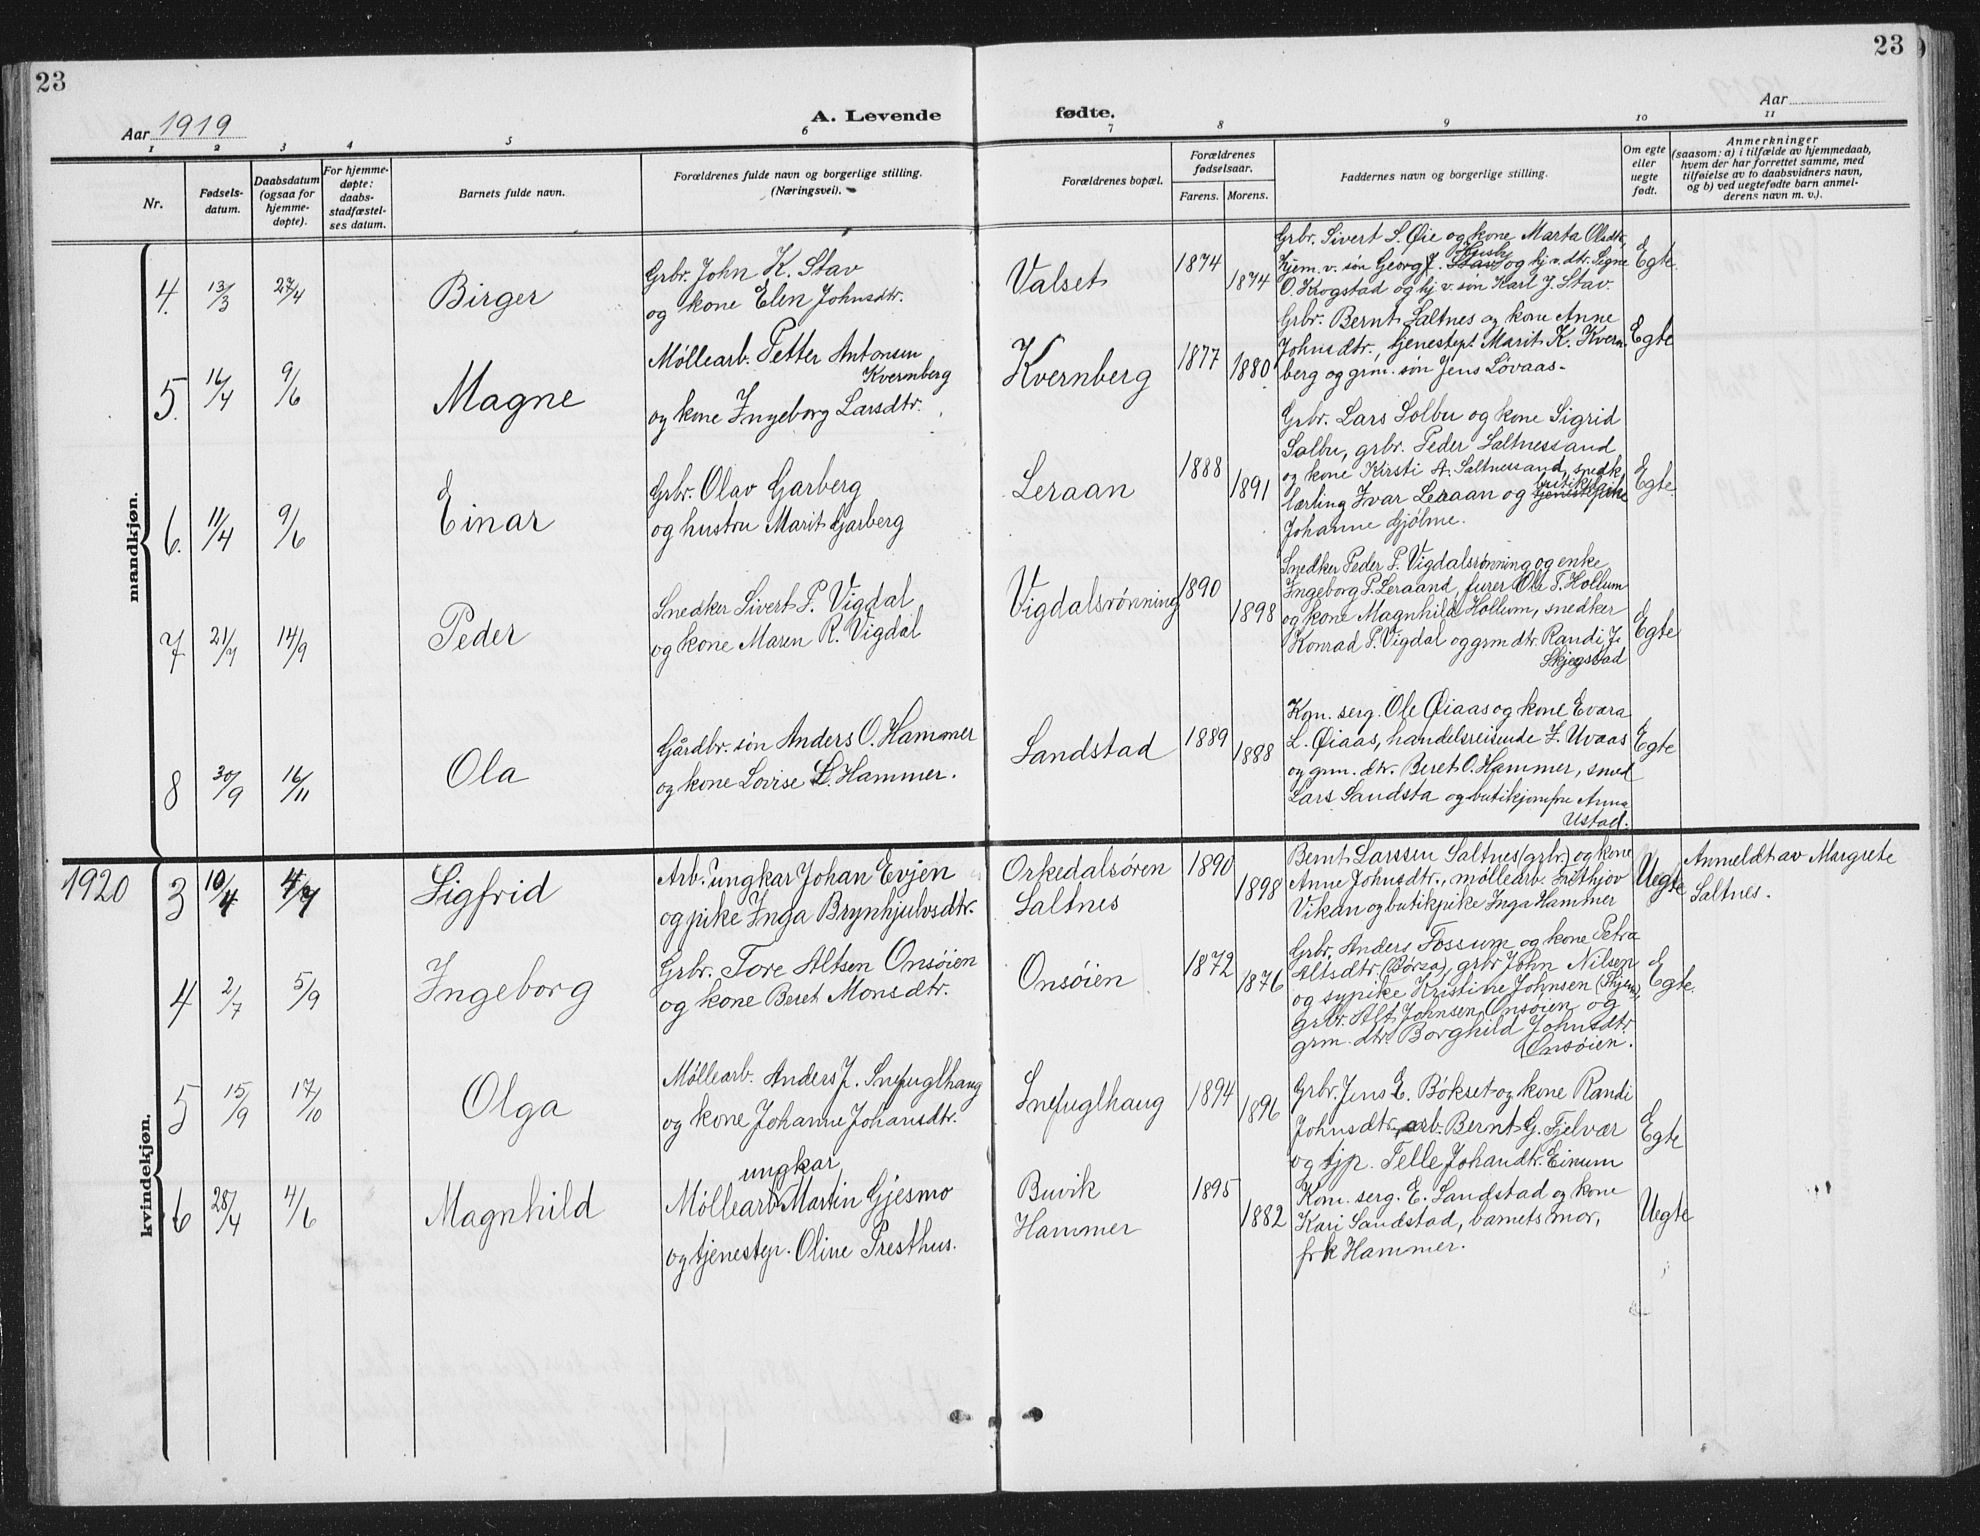 23
23
Aar 1919
A. Levende fødte.
Aar
1 2 3 4 5 6 7 8 9 10 11
Nr.
Fødsels-
datum.
Daabsdatum
(ogsaa for
hjemme-
døpte).
For hjemme-
døpte:
daabs-
stadfæstel-
ses datum.
Barnets fulde navn.
Forældrenes fulde navn og borgerlige stilling.
(Næringsvei).
Forældrenes bopæl.
Forældrenes
fødselsaar.
Farens. Morens.
Faddernes navn og borgerlige stilling.
Om egte
eller
uegte
født.
Anmerkninger
(saasom: a) i tilfælde av hjemmedaab,
hvem der har forrettet samme, med
tilføielse av to daabsvidners navn,
og b) ved uegtefødte barn anmel-
derens navn m. v.).
mandkjøn.
4. 13/3 27/4 Birger
Grbr. John K. Stav
og kone Elen Johnsdtr.
Valset
1874 1874
Grbr. Sivert S. Øie og kone Marta Olsdtr,
hjem. v. søn Georg J. Stav og hj v. dtr. Signe
O. Krogstad og hj v. søn Karl J. Stav.
Egte
5. 16/4 9/6 Magne
Møllearb. Petter Antonsen
Kvernberg
og kone Ingeborg Larsdtr.
Kvernberg
1877 1880
Grbr. Bernt Saltnes og kone Anne
Johnsdtr., tjenestep. Marit K. Kvern-
berg og grm. søn Jens Løvaas-
Egte
6. 11/4 9/6 Einar
Grbr. Olav Garberg
og hustru Marit Garberg
Leraan
1888 1891
Grbr. Lars Solbu og kone Sigrid
Solbu, grbr. Peder Saltnessand
og kone Kirsti A. Saltnessand, snedk.
lærling Ivar Leraan og tjenestepike
Johanne Gjølme.
Egte.
7 21/7 14/9 Peder
Snedker Sivert P. Vigdal
og kone Maren R. Vigdal
Vigdalsrønning
1890 1898
Snedker Peder P. Vigdalsrønning og enke
Ingeborg P. Leraand, furer Ole T. Hollum
og kone Magnhild Hollum, snedker
Konrad P. Vigdal og grm dtr. Randi J.
Skjegstad
Egte
8 30/9 16/11 Ola
Gårdbr. søn Anders O. Hammer
og kone Lovise L. Hammer.
Sandstad
1889 1888
Kom. serg. Ole Øiaas og kone Evara
L. Øiaas, handelsreisende J. Uvaas
og grm. dtr. Beret O. Hammer, smed
Lars Sandsta og butikjomfru Anna
Ustad.
Egte
kvindekjøn.
1920
3 10/4 4/7 Sigfrid
Arb. ungkar Johan Evjen
og pike Inga Brynhjulvsdtr.
Orkedalsøren
Saltnes
1890 1898
Bernt Larssen Saltnes (grbr.) og kone
Anne Johnsdtr., møllearb. Frithjov
Vikan og butikpike Inga Hammer
Uegte
Anmeldt av Margrete
Saltnes.
4 2/7 5/9 Ingeborg
Grbr. Tore Altsen Onsøien
og kone Beret Monsdtr.
Onsøien
1872 1876
Grbr. Anders Fossum og kone Petra
Altsdtr (Børsa), grbr John Nilsen
og sypike Kristine Johnsen (Skjen),
grbr. Alt Johnsen Onsøien og
grm. dtr. Borghild Johnsdtr.
Onsøien.
Egte.
5 15/9 17/10 Olga
Møllearb. Anders J. Snefuglhaug
og kone Johanne Johansdtr.
Snefuglhaug
1894 1896
Grbr. Jens E. Bökset og kone Randi
Johnsdtr, arb. Bernt G. Fjelvær
og tjp. Telle Johandtr. Einum
Egte
6 28/4 4/6 Magnhild
ungkar
Møllearb Martin Gjesmo
og tjenestep. Oline Presthus.
Buvik
Hammer
1895 1882
Kom. serg. E. Sandstad og kone
Kari Sandstad, barnets mor,
frk Hammer.
Uegte